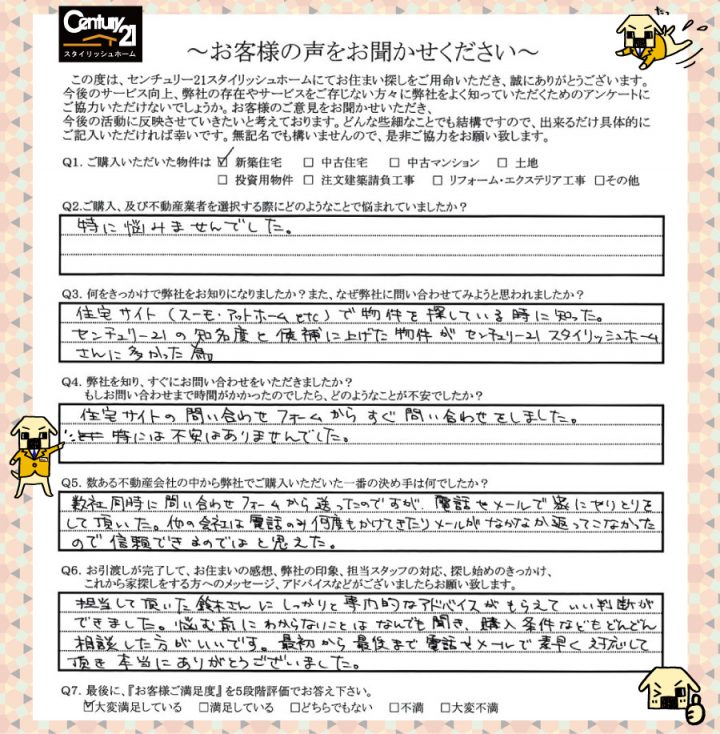 Century 21
スタイリッシュホーム
だっ
～お客様の声をお聞かせください～
この度は、センチュリー21スタイリッシュホームにてお住まい探しをご用命いただき、誠にありがとうございます。
今後のサービス向上、弊社の存在やサービスをご存じない方々に弊社をよく知っていただくためのアンケートに
ご協力いただけないでしょうか。お客様のご意見をお聞かせいただき、
今後の活動に反映させていきたいと考えております。どんな些細なことでも結構ですので、出来るだけ具体的に
ご記入いただければ幸いです。無記名でも構いませんので、是非ご協力をお願い致します。
Q1. ご購入いただいた物件は ☑ 新築住宅 □ 中古住宅 □ 中古マンション □ 土地
□ 投資用物件 □ 注文建築請負工事 □ リフォーム・エクステリア工事 □その他
Q2.ご購入、及び不動産業者を選択する際にどのようなことで悩まれていましたか？
特に悩みませんでした。
Q3. 何をきっかけで弊社をお知りになりましたか？また、なぜ弊社に問い合わせてみようと思われましたか？
住宅サイト（スーモ・アットホームetc）で物件を探している時に知った。
センチュリー21の知名度と候補に上げた物件がセンチュリー21スタイリッシュホーム
さんに多かった為
Q4. 弊社を知り、すぐにお問い合わせをいただきましたか？
もしお問い合わせまで時間がかかったのでしたら、どのようなことが不安でしたか？
住宅サイトの問い合わせフォームからすぐ問い合わせをしました。
特には不安はありませんでした。
Q5. 数ある不動産会社の中から弊社でご購入いただいた一番の決め手は何でしたか？
数社同時に問い合わせフォームから送ったのですが、電話やメールで密にやりとりを
して頂いた。他の会社は電話のみ何度もかけてきたりメールがなかなか返ってこなかった
ので信頼できるのではと思えた。
Q6. お引渡しが完了して、お住まいの感想、弊社の印象、担当スタッフの対応、探し始めのきっかけ、
これから家探しをする方へのメッセージ、アドバイスなどがございましたらお願い致します。
担当して頂いた鈴木さんにしっかりと専門的なアドバイスがもらえていい判断が
できました。悩む前にわからないことはなんでも聞き、購入条件などもどんどん
相談した方がいいです。最初から最後まで電話やメールで素早く対応して
頂き本当にありがとうございました。
Q7. 最後に、『お客様ご満足度』を5段階評価でお答え下さい。
☑大変満足している □満足している □どちらでもない □不満 □大変不満